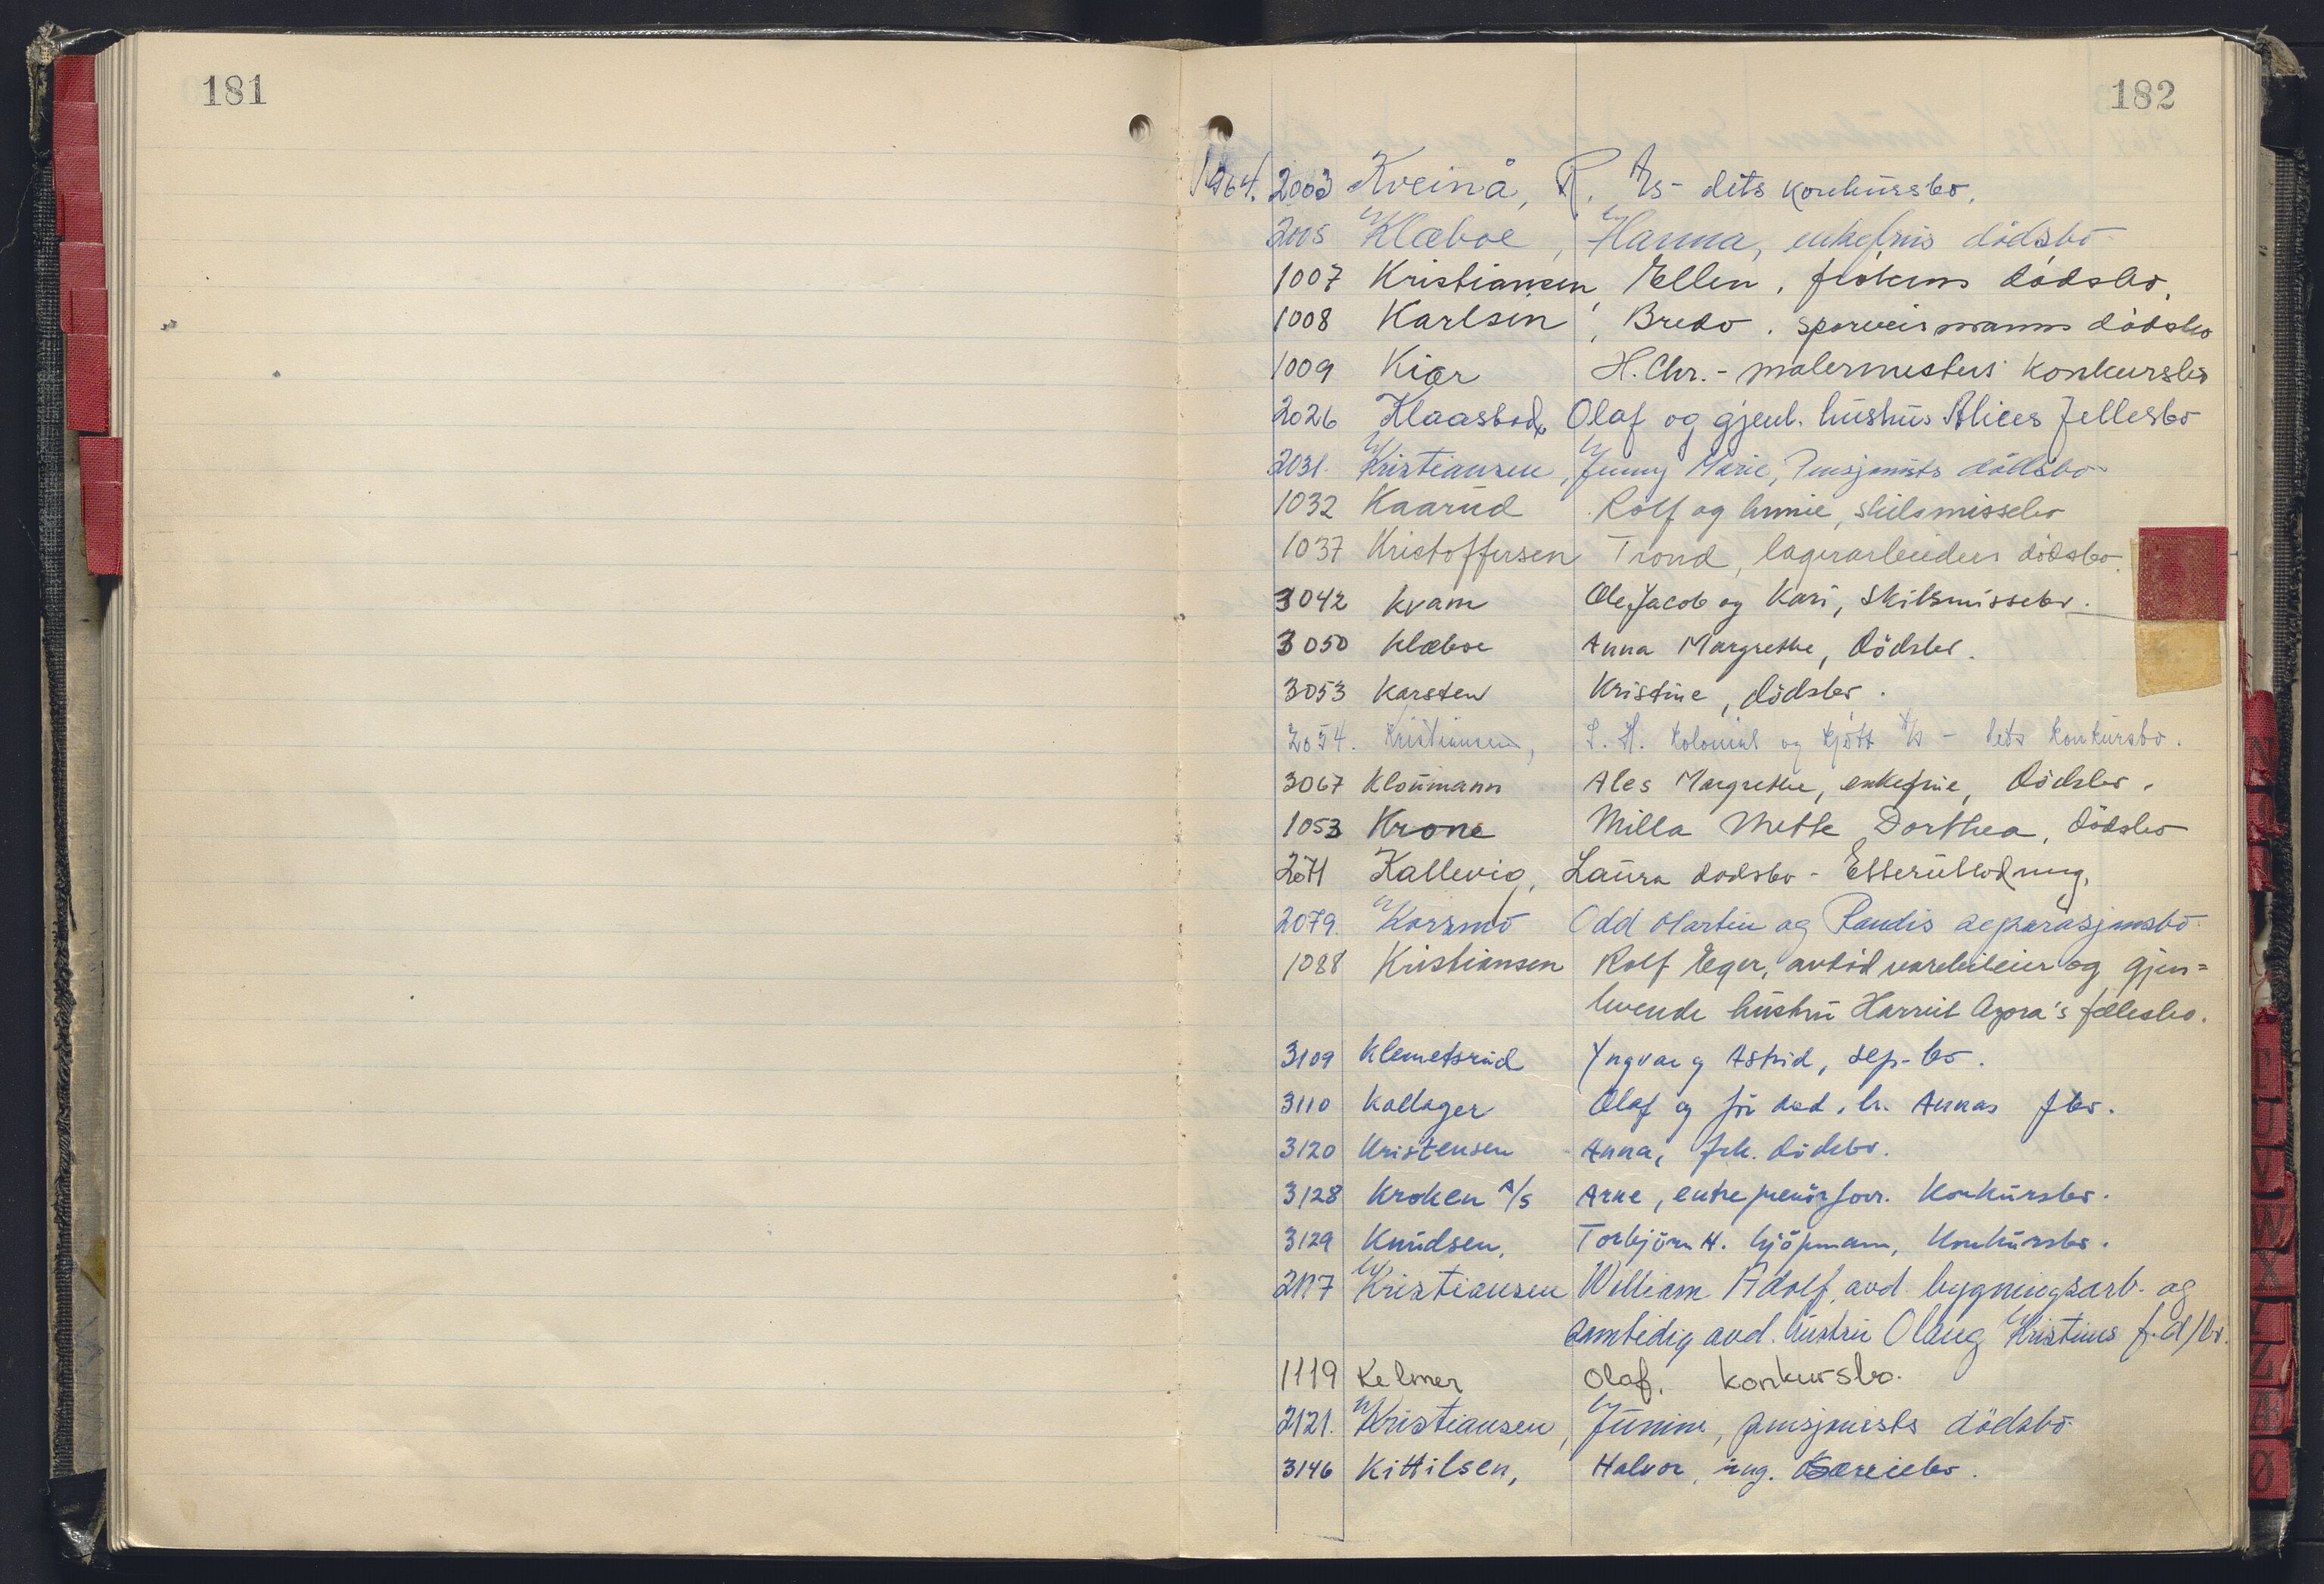 181
182
1964. 2003 Kveinå, R. A/s - dets konkursbo.
2005 Klæboe, Hanna, enkefrus dödsbo
1007 Kristiansen, Ellen, frökens dödsbo.
1008 Karlsen, Bredo, sporveismanns dödsbo
1009 Kiær H. Chr. - malermesters konkursbo
2026 Klaasbod, Olaf og gjenl. hustrus Alices fellesbo
2031. Kristiansen, Jenny Marie, Pensjonists dödsbo
1032 Kaarud Rolf og , skilsmissebo
1037 Kristoffersen Trond, lagerarbeiders dödsbo.
3042 Kvam Ole Jacob og Kari, skilsmissebo.
3050 Klæboe Anna Margrethe, dödsbo.
3053 Karsten Kristine, dödsbo.
2054. Kristiansen, L. H. Kolonial og kjött A/s - dets konkursbo.
3067 Kloumann Ales Margrethe, enkefrue, dödsbo.
1053 Krone Milla Mette Dorthea, dödsbo
2071 Kallevig, Laura dödsbo - Etterutlodning.
2079. Korsmo Odd Martin og Randis separasjonsbo
1088 Kristiansen Rolf Eger, avdöd varebileier og gjen=
levende hustru Harriet Azora's fellesbo.
3109 Klemetsrud Yngvar og Astrid, sep-bo.
3110 Kallager Olaf og för död. h. Annas fbo.
3120 Kristensen Anna, frk. dödsbo.
3128 Kroken A/s Arne, entreprenörforr. Konkursbo.
3129 Knudsen, Torbjörn H. kjöpmann, Konkursbo.
2117 Kristiansen William Adolf, avd. bygningsarb. og
samtidig avd. hustru Olaug Kristines f.d/bo.
1119 Kelmer Olaf, konkursbo.
2121. Kristiansen, Junine, pensjonists dödsbo
3146 Kittilsen, Halvor, ing.
N
U
V
W
X
Z
Ø